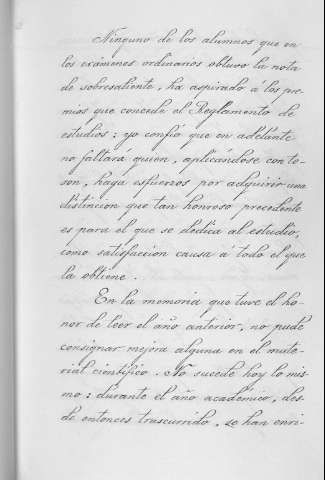 Ninguno de los alumnos que en
los exámenes ordinarios obtuvo la nota
de sobresaliente, ha aspirado á los pre-
mios que concede el Reglamento de
estudios; yo confío que en adelante
no faltará quien, aplicándose con te-
son, haga esfuerzos por adquirir una
distincion que tan honroso precedente
es para el que se dedica al estudio,
como satisfaccion causa á todo el que
la obtiene.
En la memoria que tuve el ho-
nor de leer el año anterior, no pude
consignar mejora alguna en el mate-
rial científico. No sucede hoy lo mis-
mo: durante el año académico, des-
de entonces trascurrido, se han enri-